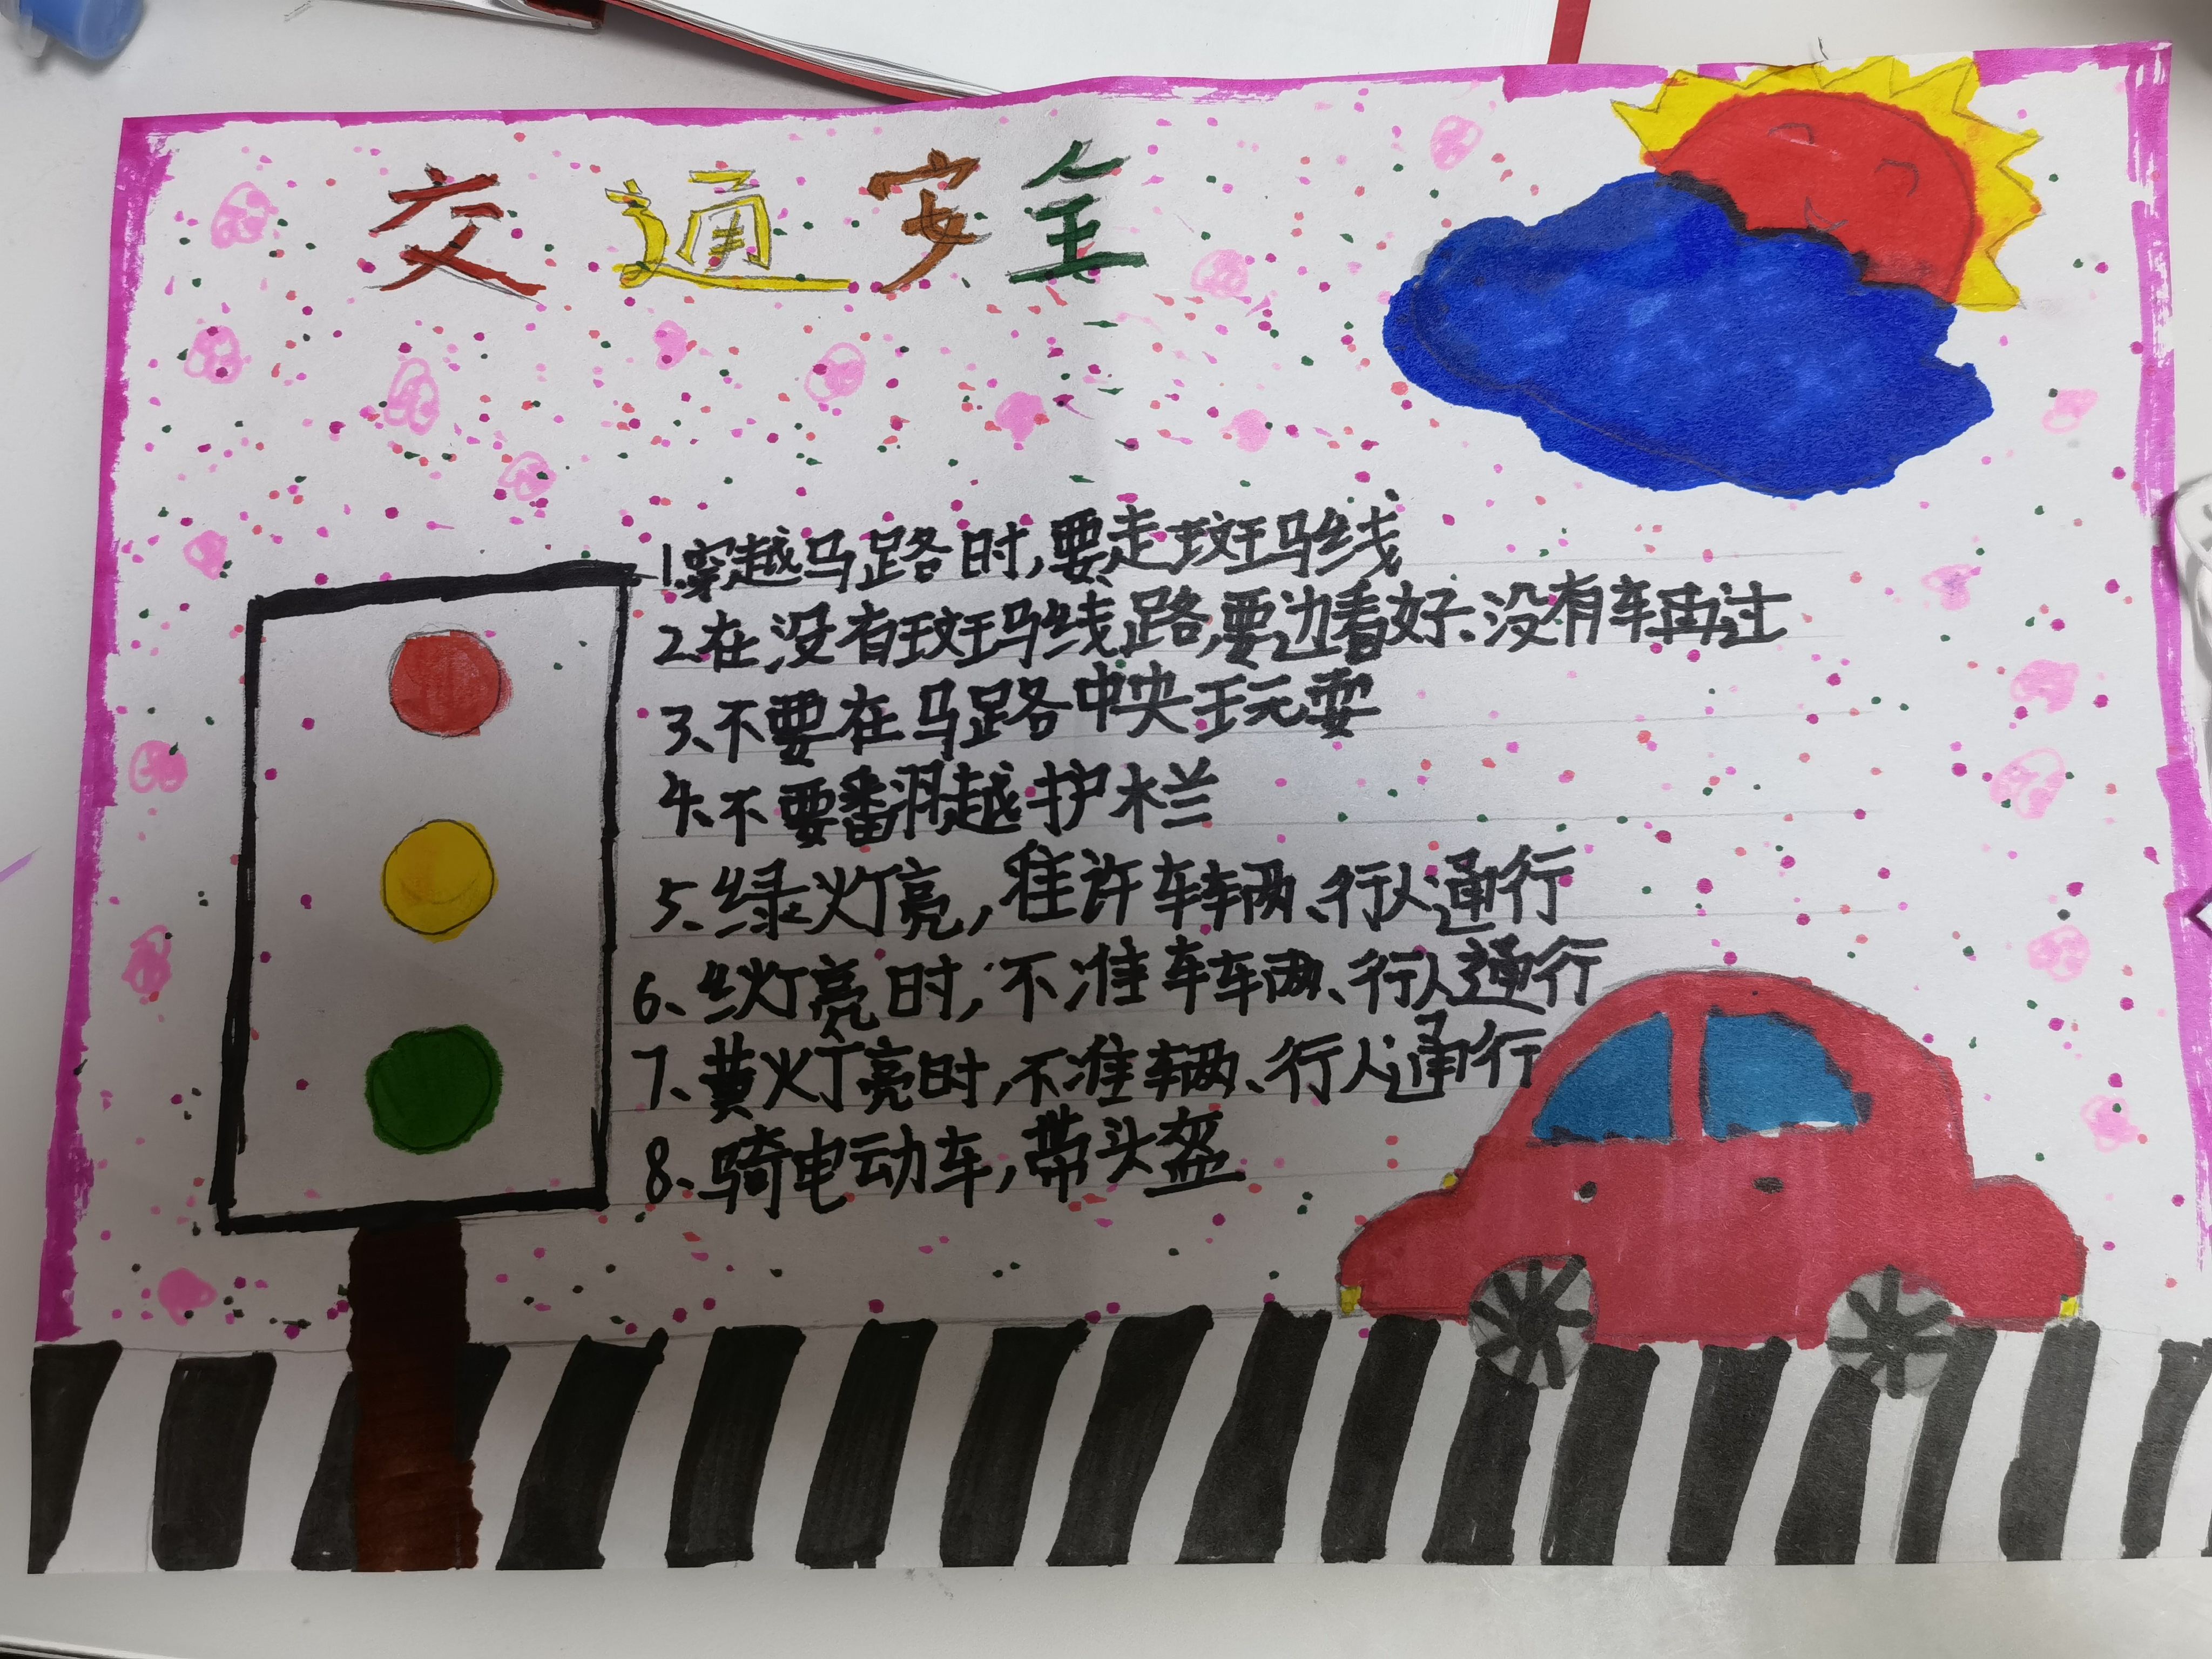 交通安全
1.穿越马路时,要走斑马线
2.在没有斑马线路,要边看好、没有车再过
3、不要在马路中央玩耍
4、不要翻越护栏
5、绿灯亮,准许车辆、行人通行
6、红灯亮时,不准车辆、行人通行
7、黄灯亮时,不准车辆、行人通行
8、骑电动车,带头盔